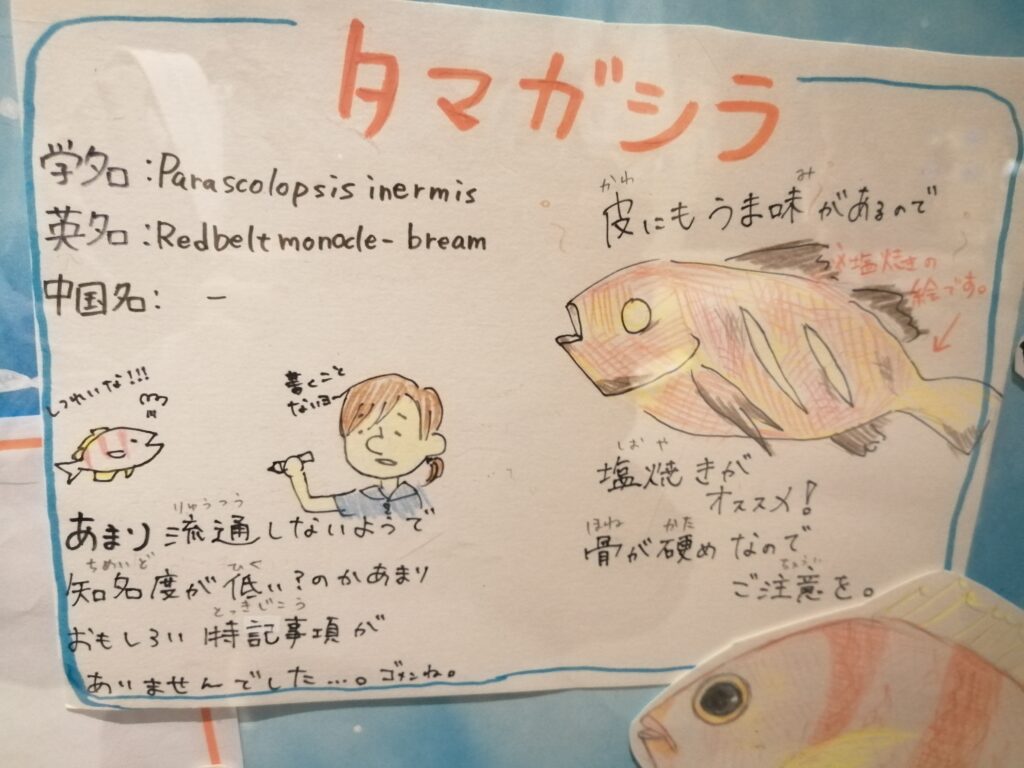 タマガシラ
学名：Parascolopsis inermis
英名：Redbelt monocle-bream
中国名： －
しつれいな!!!
書くこと
ないヨ～
りゅうつう
あまり流通しないようで
ちめいど ひく
知名度が低い？のかあまり
とっきじこう
おもしろい特記事項が
ありませんでした…。ゴメンね。
かわ み
皮にもうま味があるので
※塩焼きの
絵です。
しおや
塩焼きが
オススメ！
ほね かた
骨が硬めなので
ちゅうい
ご注意を。